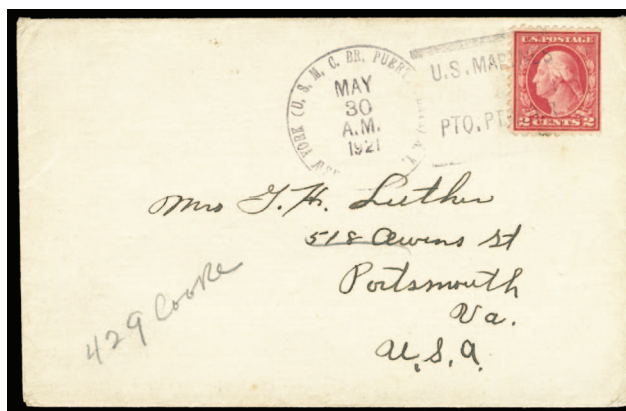 YORK (U.S.M.C. BR. PUER
MAY
30
A.M.
1921
U.S. MAR
PTO. PT
U.S. POSTAGE
2 CENTS 2
Mrs G. H. Luther
518 Owens St
Portsmouth
Va.
U.S.A.
429 Cooke